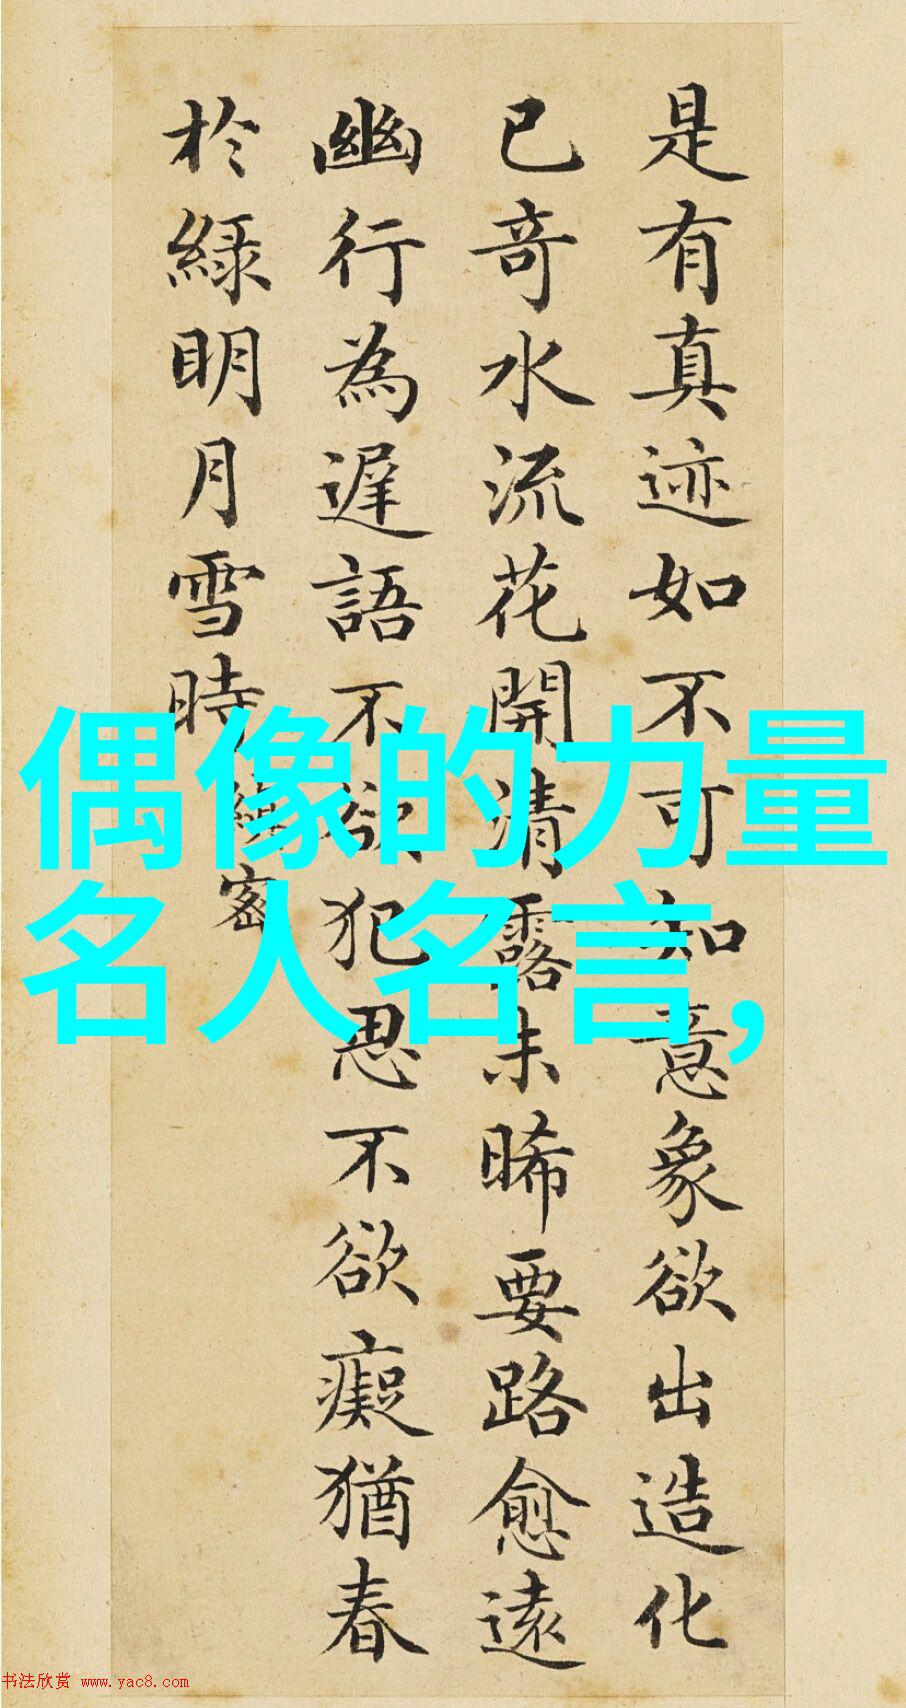 是有真迹如不可知意象欲出造化
已奇水流花開清露未晞要路愈遠
幽行為遲語不欲犯思不欲癡猶春
於綠明月雪時
縝密
偶像的力量
名人名言,
书法欣赏 www.yac8.com